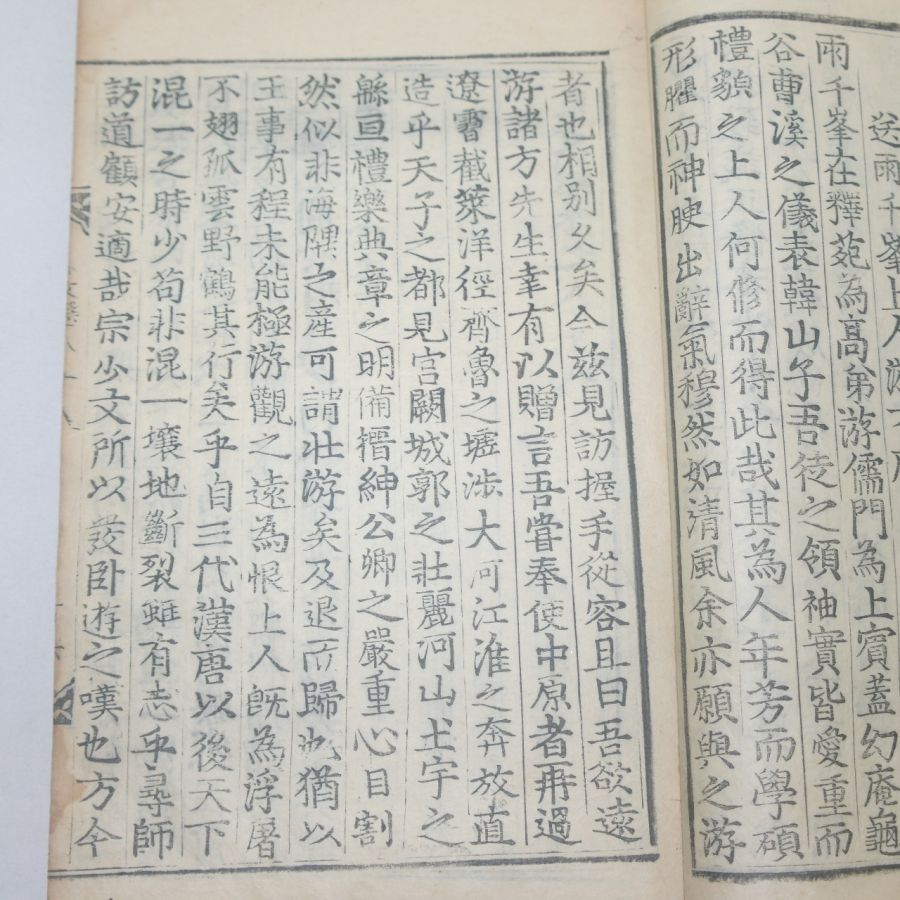 送雨千峯上人游
雨千峯在釋苑為高弟游儒門為上賓蓋幻庵龜
谷曹溪之儀表韓山子吾徒之領袖實皆愛重而
禮貌之上人何修而得此哉其為人年芳而學碩
形臞而神腴出辭氣穆然如清風余亦願與之游
者也相別久矣今茲見訪握手從容且曰吾欲遠
游諸方先生幸有以贈言吾嘗奉使中原者再過
遼霫截萊洋徑齊魯之墟涉大河江淮之奔放直
造乎天子之都見宮闕城郭之壯麗河山土宇之
緜亘禮樂典章之明備搢紳公卿之嚴重心目割
然似非海隅之產可謂壯游矣及退而歸也猶以
王事有程未能極游觀之遠為恨上人旣為浮屠
不翅孤雲野鶴其行矣乎自三代漢唐以後天下
混一之時少苟非混一壤地斷裂雖有志乎尋師
訪道顧安適哉宗少文所以發卧遊之嘆也方今